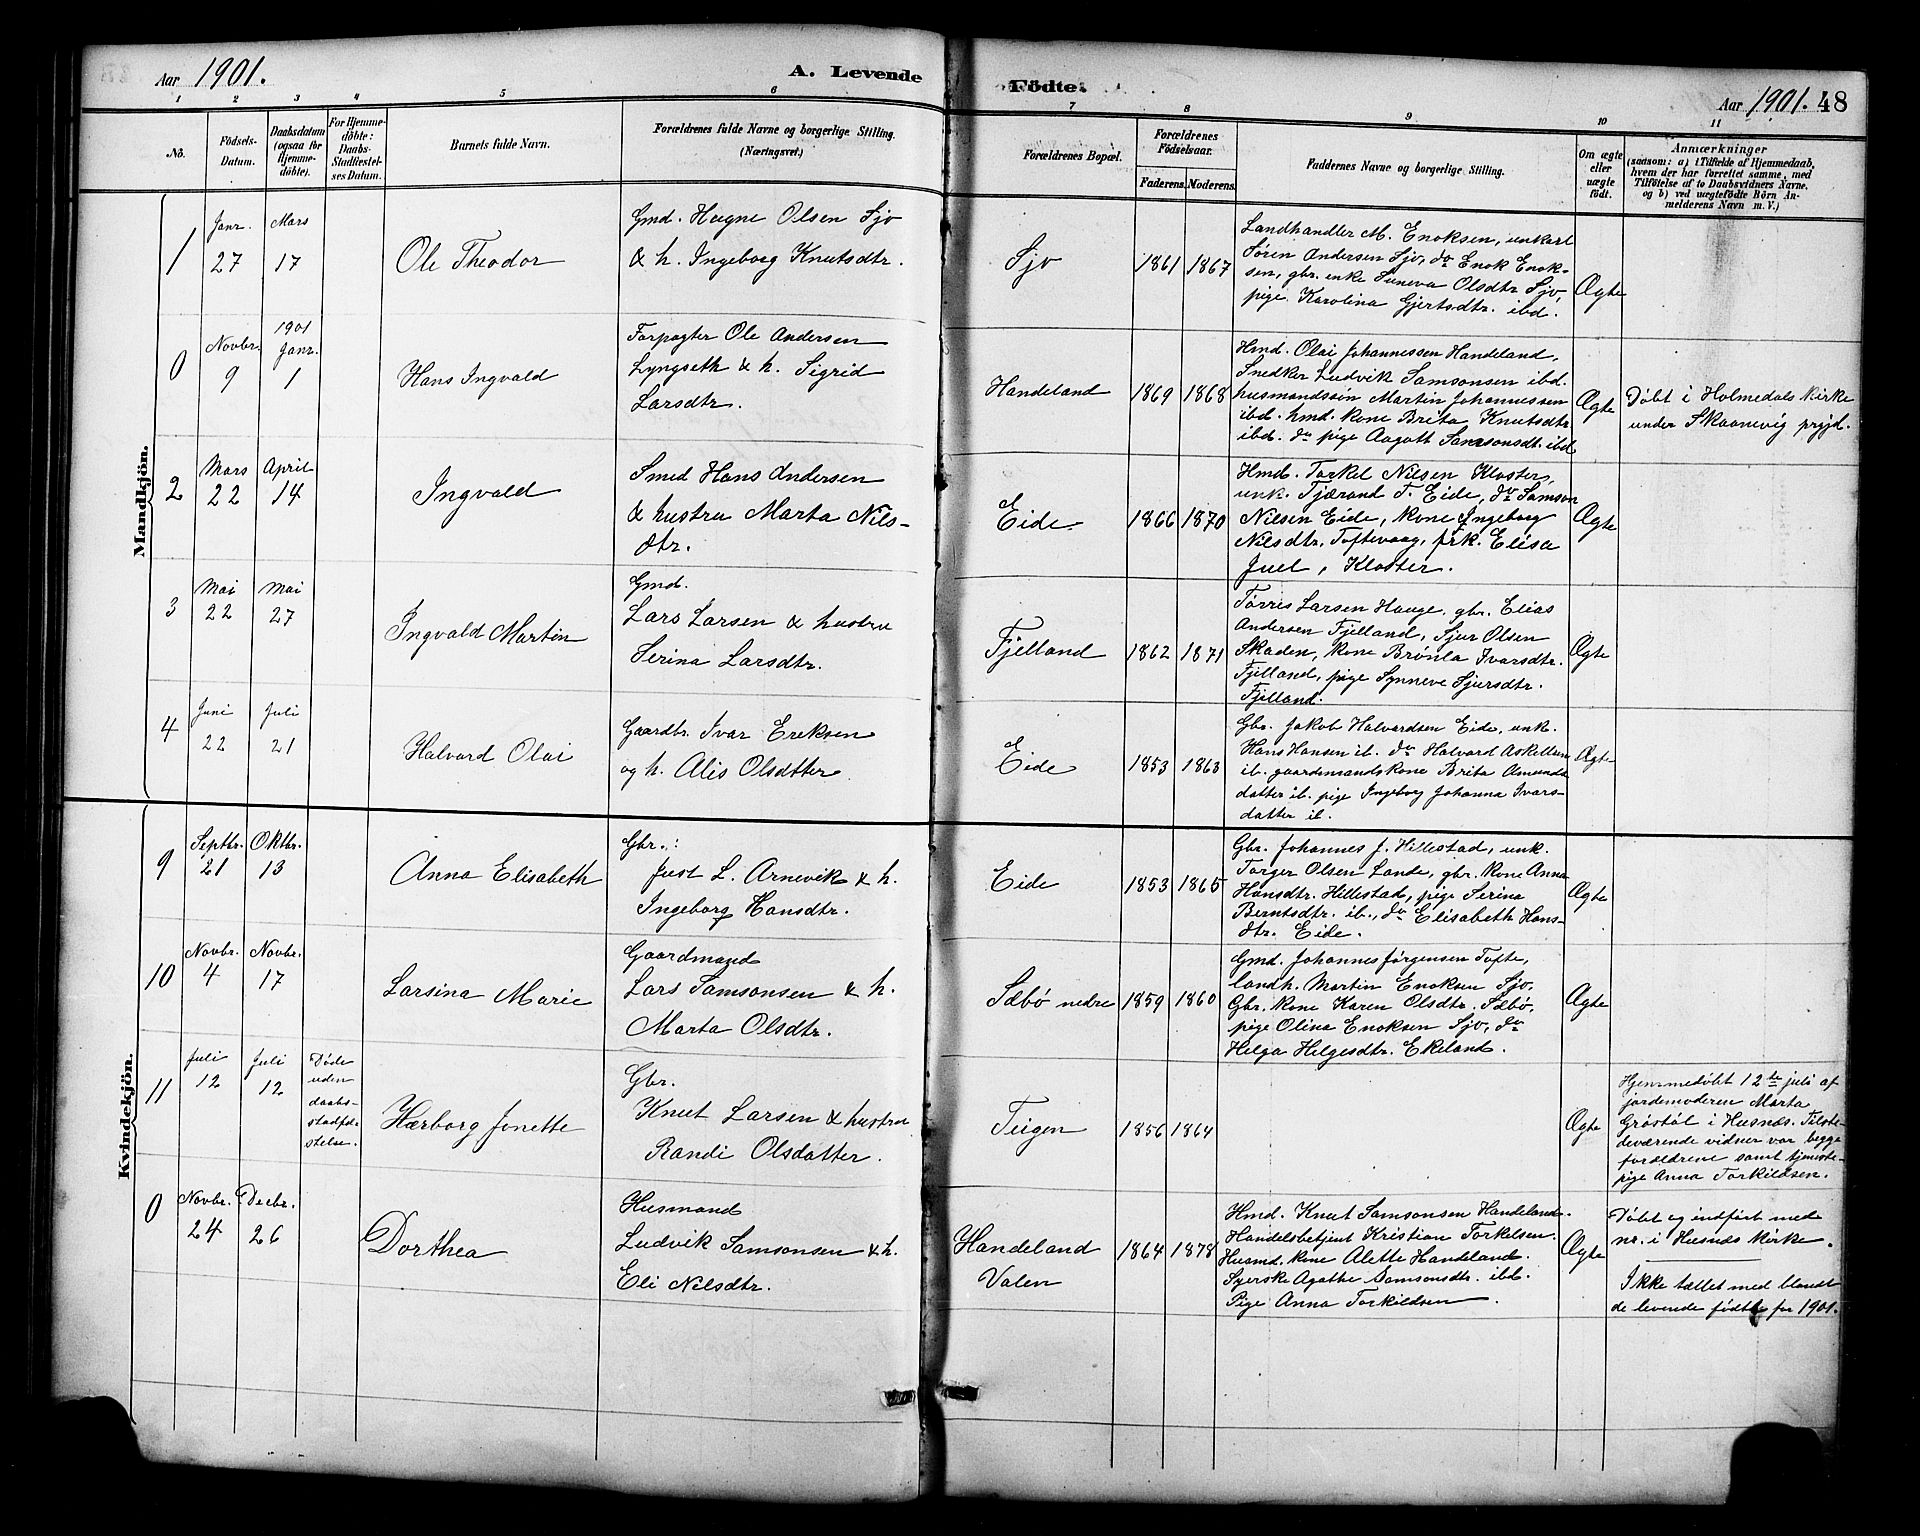 Aar 1901.
A. Levende
Födte.
Aar 1901. 48
1 2 3 4 5 6 7 8 9 10 11
No.
Födsels-
Datum.
Daabsdatum
(ogsaa for
Hjemme-
döbte).
For Hjemme-
döbte:
Daabs-
Stadfæstel-
ses Datum.
Barnets fulde Navn.
Forældrenes fulde Navne og borgerlige Stilling.
(Næringsvei.)
Forældrenes Bopæl.
Forældrenes
Födselsaar.
Faderens. Moderens.
Faddernes Navne og borgerlige Stilling.
Om ægte
eller
uægte
födt.
Anmærkninger
(saasom: a) i Tilfælde af Hjemmedaab,
hvem der har forrettet samme, med
Tilföielse af to Daabsvidners Navne,
og b) ved uægtefödte Börn An-
melderens Navn m. V.)
Mandkjön.
1
Janr.
27
Mars
17
Ole Theodor
Gmd. Hagne Olsen Sjo
& h. Ingeborg Knutsdtr.
Sjo
1861 1867
Landhandler M. Enoksen, unkarl
Søren Andersen Sjo, do Enok Enok-
sen, gbr. enke Suneva Olsdtr Sjo,
pige Karolina Gjertsdtr. ibd.
Ægte
0
Novbr.
9
1901
Janr.
1
Hans Ingvald
Forpagter Ole Andersen
Lyngseth & h. Sigrid
Larsdtr.
Handeland
1869 1868
Hmd. Olai Johannessen Handeland,
Snedker Ludvik Samsonsen ibd.
husmandssön Martin Johannessen
ibd. hmd. kone Brita Knutsdtr
ibd. do pige Aagott Samsonsdt. ibd
Ægte
Døbt i Holmedals kirke
under Skaanevig prgjd.
2
Mars
22
April
14
Ingvald
Smed Hans Andersen
& hustru Marta Nils-
dtr.
Eide
1866 1870
Hmd. Torkel Nilsen Kloster,
unk. Tjærand T. Eide, do Samson
Nilsen Eide, kone Ingeborg
Nilsdtr. Toftevaag, frk. Elisa
Juel, Kloster.
Ægte
3
Mai
22
Mai
27
Ingvald Martin
Gmd.
Lars Larsen & hustru
Serina Larsdtr.
Fjelland
1862 1871
Tørris Larsen Hauge, gbr. Elias
Andersen Fjelland, Sjur Olsen
Skaden, kone Brønla Ivarsdtr.
Fjelland, pige Synneve Sjursdtr.
Fjelland.
Ægte
4
Juni
22
Juli
21
Halvard Olai
Gaardbr. Ivar Eriksen
og h. Alis Olsdtter.
Eide
1853 1863
Gbr. Jakob Halvardsen Eide, unk.
Hans Hansen ib. do Halvard Askellsen
ib. gaardmandskone Brita Amunds
datter ib. pige Ingeborg Johanna Ivars-
datter ib.
Ægte
Kvindekjön.
9
Septbr.
21
Oktbr.
13
Anna Elisabeth
Gbr.:
Just L. Arnevik & h.
Ingeborg Hansdtr.
Eide
1853 1865
Gbr. Johannes J. Hillestad, unk.
Torger Olsen Lande, gbr. kone Anna
Hansdtr. Hillestad, pige Serina
Berntsdtr. ib., do Elisabeth Hans-
dtr. Eide.
Ægte
10
Novbr.
4
Novbr.
17
Larsina Marie
Gaardmand
Lars Samsonsen & h.
Marta Olsdtr.
Sæbö nedre
1859 1860
Gmd. Johannes Jörgensen Tofte,
landh. Martin Enoksen Sjo,
Gbr. kone Karen Olsdtr. Sæbö,
pige Olina Enoksen Sjo, do
Helga Helgesdtr. Ekeland.
Ægte
11
Juli
12
Juli
12
Døde
uden
daabs-
stadfæ-
stelse.
Hærborg Jonette
Gbr.
Knut Larsen & hustru
Randi Olsdatter.
Teigen
1856 1864
Ægte
Hjemmedøbt 12te juli af
jordemoderen Marta
Gröstöl i Husnæs. Tilste-
deværende vidner var begge
forældrene samt tjeneste-
pige Anna Torkildsen.
0
Novbr.
24
Decbr.
26
Dorthea
Husmand
Ludvik Samsonsen & h.
Eli Nilsdtr.
Handeland
Valen
1864 1878
Hmd. Knut Samsonsen Handeland.
Handelsbetjent Kristian Torkelsen.
Husmd. kone Alette Handeland.
Syerske Agathe Samsonsdtr. ibd.
Pige Anna Torkildsen.
Ægte
Døbt og indført med
nr. i Husnæs kirke.
Ikke tællet med blandt
de levende fødte for 1901.